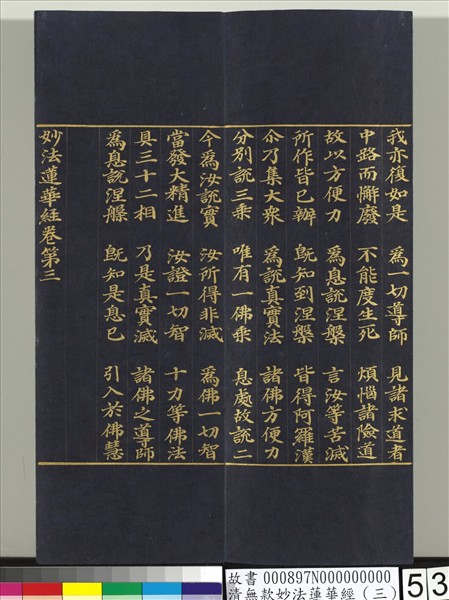 我亦復如是　為一切導師　見諸求道者
中路而懈廢　不能度生死　煩惱諸險道
故以方便力　為息說涅槃　言汝等苦滅
所作皆已辦　既知到涅槃　皆得阿羅漢
尒乃集大衆　為說真實法　諸佛方便力
分別說三乘　唯有一佛乘　息處故說二
今為汝說實　汝所得非滅　為佛一切智
當發大精進　汝證一切智　十力等佛法
具三十二相　乃是真實滅　諸佛之導師
為息說涅槃　既知是息已　引入於佛慧
妙法蓮華經卷第三
故書 000897N000000000
清無款妙法蓮華經（三）
53